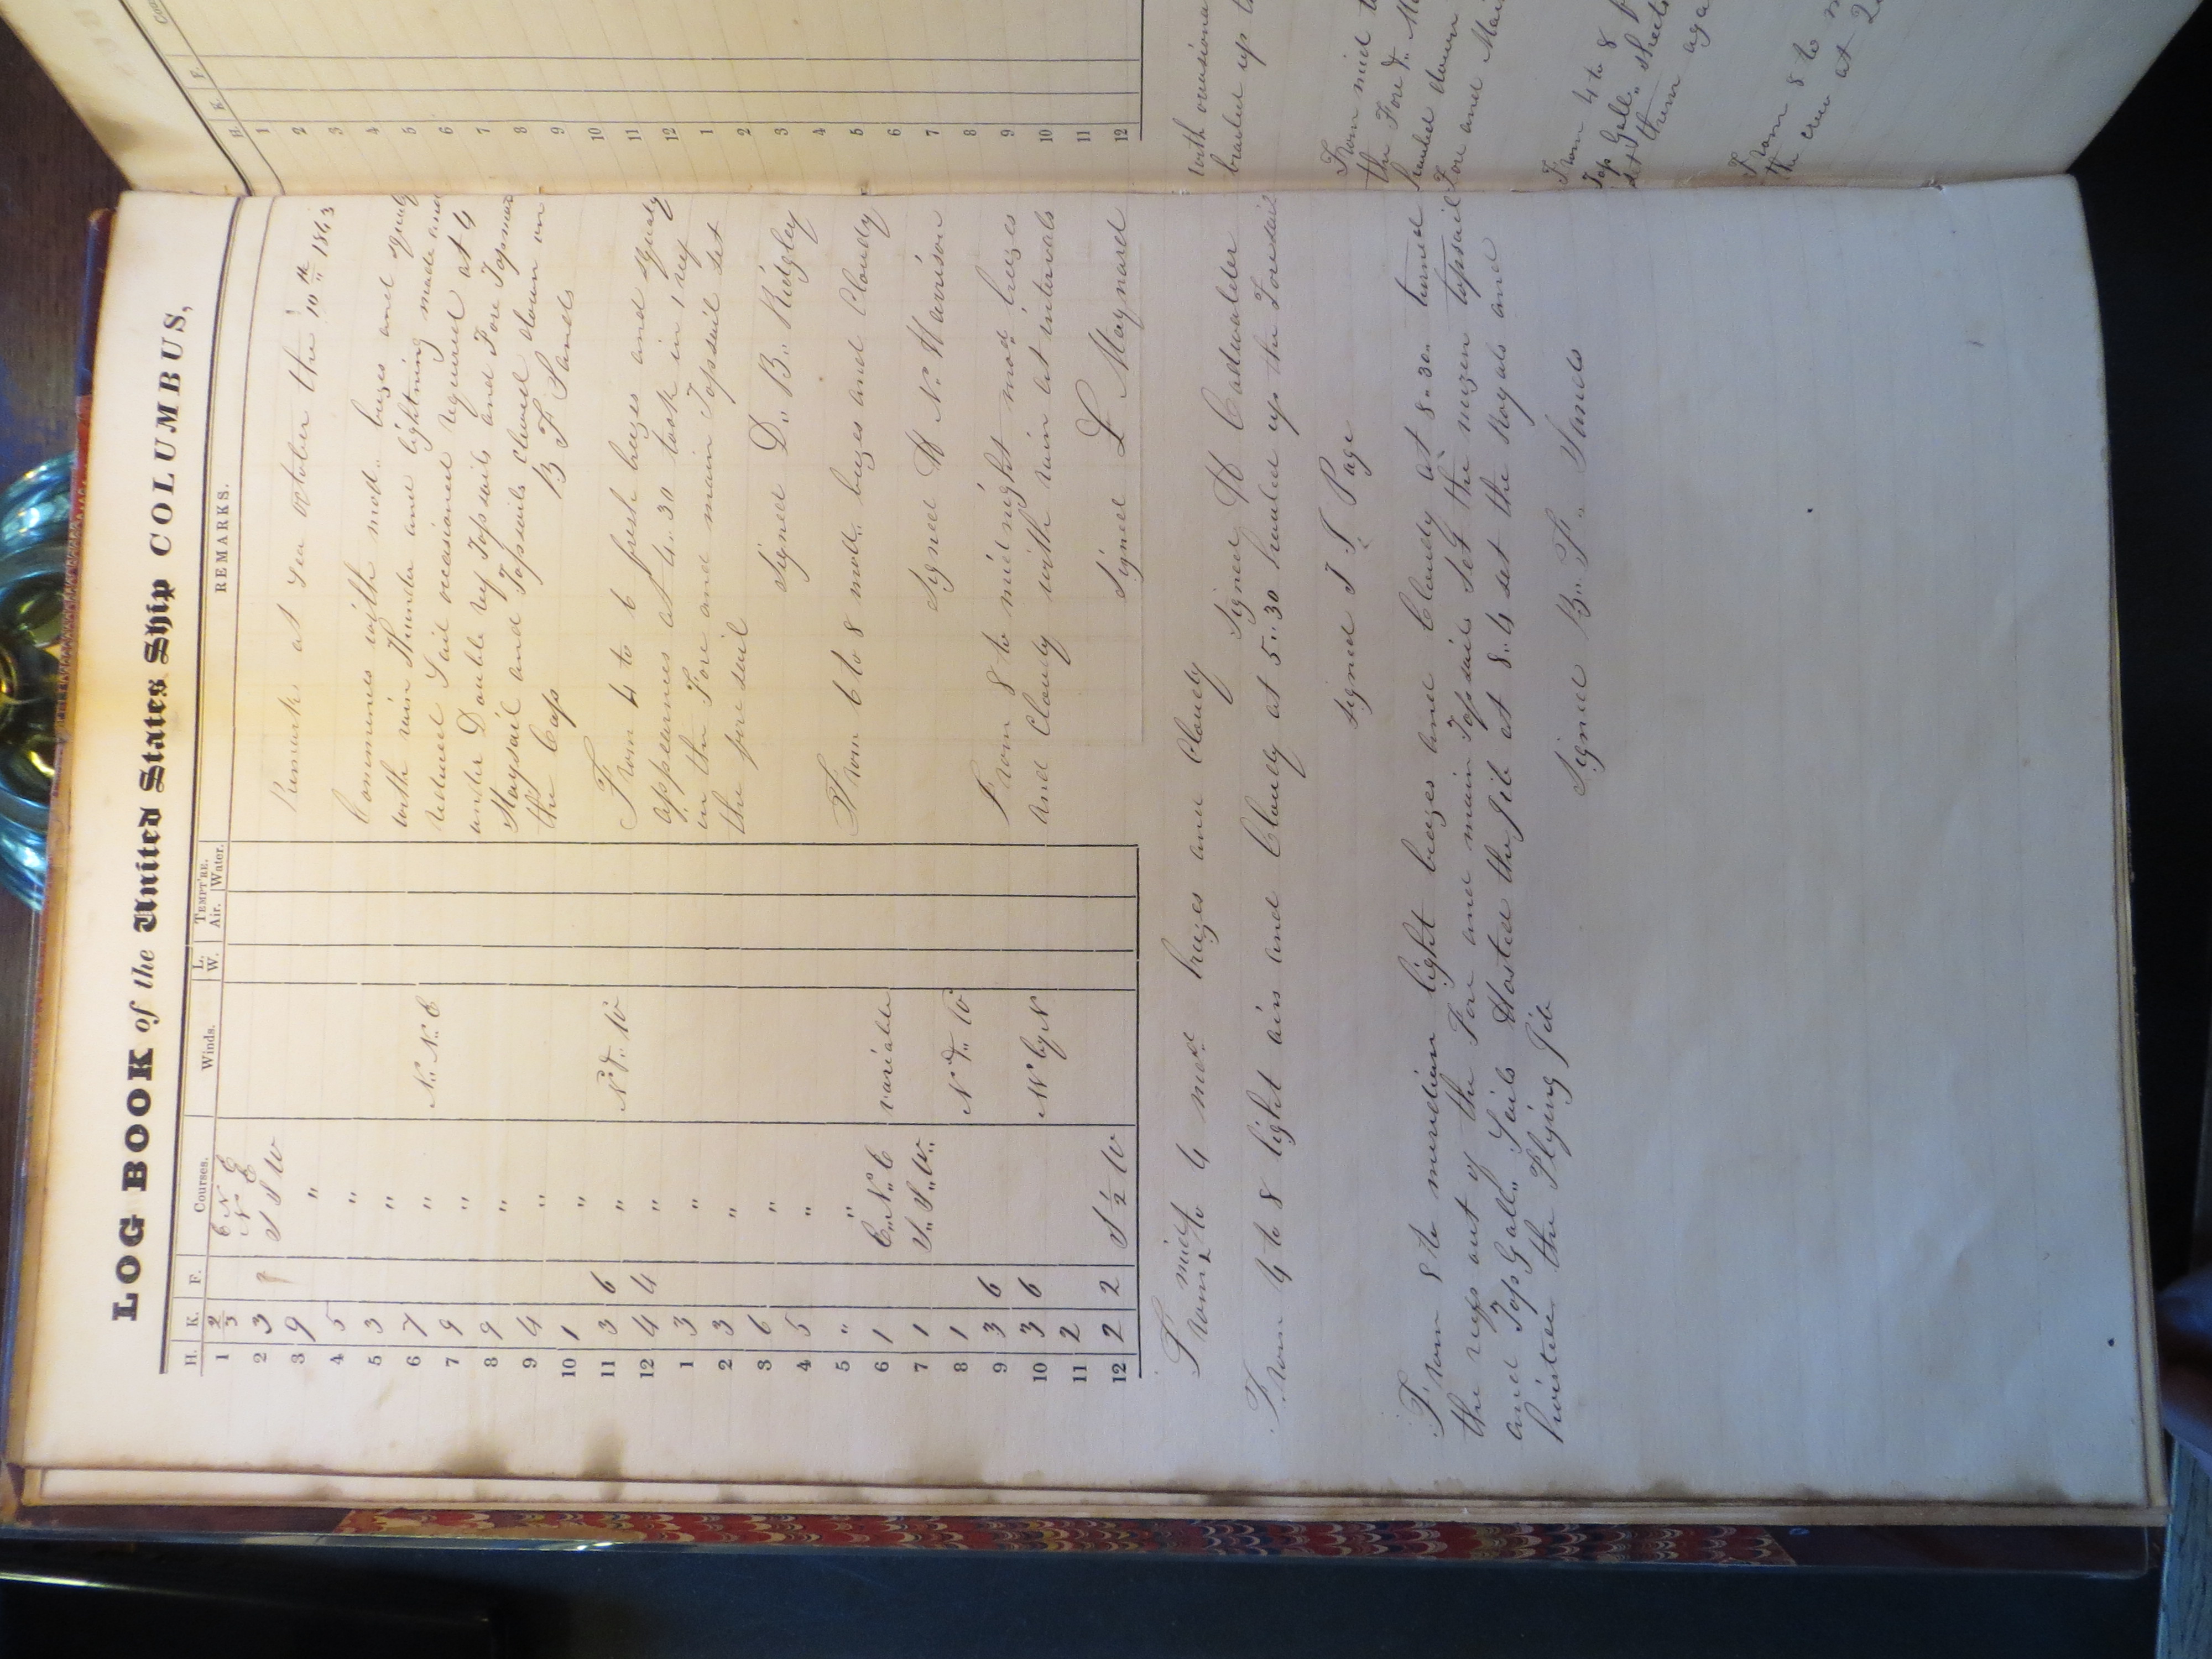 LOG BOOK of the United States Ship COLUMBUS,
H. K. F. Courses. Winds. L. W. TEMPT'RE. Air. Water. REMARKS.
1 2/3 E N E
N E
2 3 S S W
3 9 "
4 5 "
5 3 "
6 7 " N.. N.. E
7 9 "
8 9 "
9 4 "
10 1 "
11 3 6 " N & W
12 4 4 "
1 3 "
2 3 "
3 6 "
4 5 "
5 " "
6 1 E.. N.. E variable
7 1 S.. S.. W..
8 1 N & W
9 3 6
10 3 6 N by N
11 2
12 2 2 S ½ W
Remarks at Sea October the 10th 1843
Commences with mod.. brezes and squaly
with rain Thunder and lightning made and
reduced Sail occasioned required at 4
under Double ref Topsails and Fore Topmas
Staysail and Topsails clewed down on
the Caps B F Sands
From 4 to 6 fresh brezes and squaly
appearnes at 4.. 30 took in 1 ref
in the Fore and main Topsail set
the fore sail
Signed D.. B.. Ridgley
From 6 to 8 mod.. brezes and Cloudy
Signed H N. Harrison
From 8 to midnight mod brezes
and Cloudy with rain at intervals
Signed L Maynard
From mid to 4 mod brezes and Cloudy
Signed H Cadwalader
From 4 to 8 light airs and Cloudy at 5.. 30 hauled up the Foresail
Signed T J Page
From 8 to meridian light brezes and Cloudy at 8.. 30.. turned
the refs out of the Fore and main Topsails set the mizen topsail
and Top Gall.. Sails Hosted the Jib at 8.. 4 set the Royals and
hoisted the Flying Jib
Signed B.. F.. Sands
H. K. F.
1
2
3
4
5
6
7
8
9
10
11
12
1
2
3
4
5
6
7
8
9
10
11
12
with occasiona
brailed up
From mid to
the Fore &
hauled down
Fore and Mai
From 4 to 8
Top Gall.. Sheets
set them aga
From 8 to
the crew at